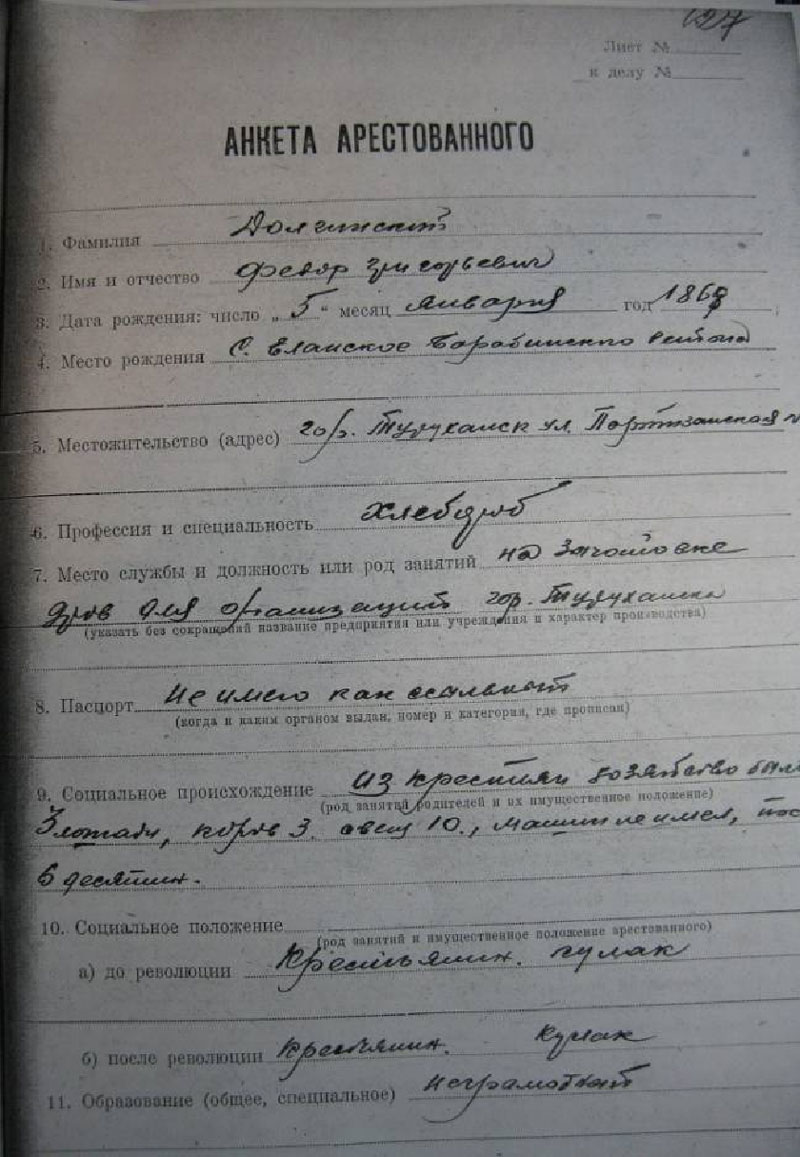 127
Лист №
к делу №
АНКЕТА АРЕСТОВАННОГО
1. Фамилия Долгинский
2. Имя и отчество Федор Григорьевич
3. Дата рождения: число „ 5 " месяц Января год 1868
4. Место рождения С. Еланское Барабинского района
5. Местожительство (адрес) гор. Туруханск ул. Партизанская
6. Профессия и специальность хлебороб
7. Место службы и должность или род занятий на заготовке
дров для организаций гор. Туруханска
(указать без сокращений название предприятия или учреждения и характер производства)
8. Паспорт Не имею как ссыльный
(когда и каким органом выдан, номер и категория, где прописан)
9. Социальное происхождение из крестьян хозяйство было
(род занятий родителей и их имущественное положение)
3 лошади, коров 3. овец 10., машин не имел, пос
6 десятин.
10. Социальное положение
(род занятий и имущественное положение арестованного)
а) до революции Крестьянин. кулак
б) после революции крестьянин. Кулак
11. Образование (общее, специальное) неграмотный